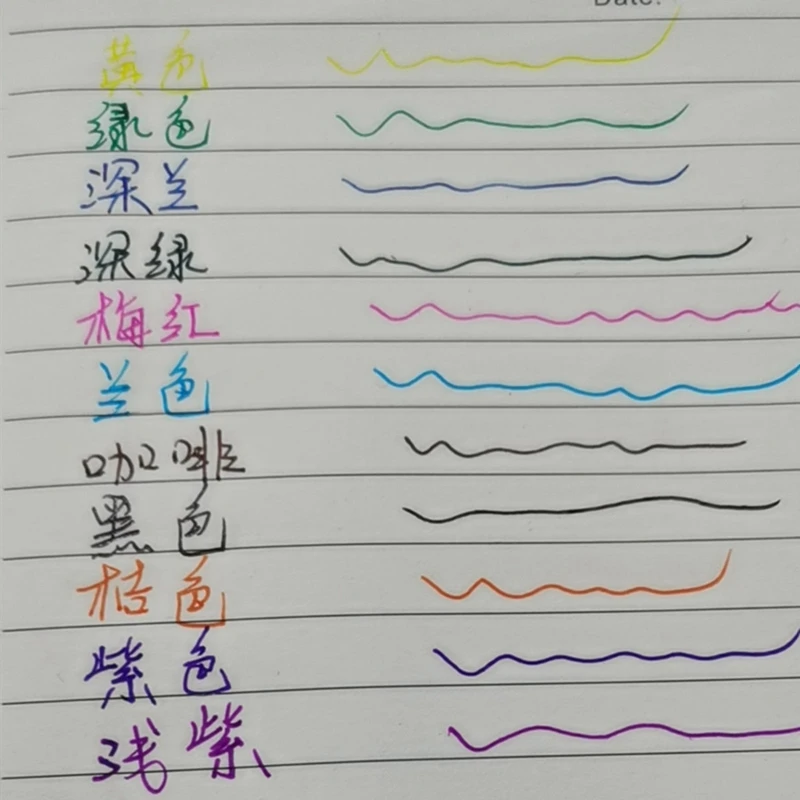 Date:
黄色
绿色
深兰
深绿
梅红
兰色
咖啡
黑色
桔色
紫色
浅紫